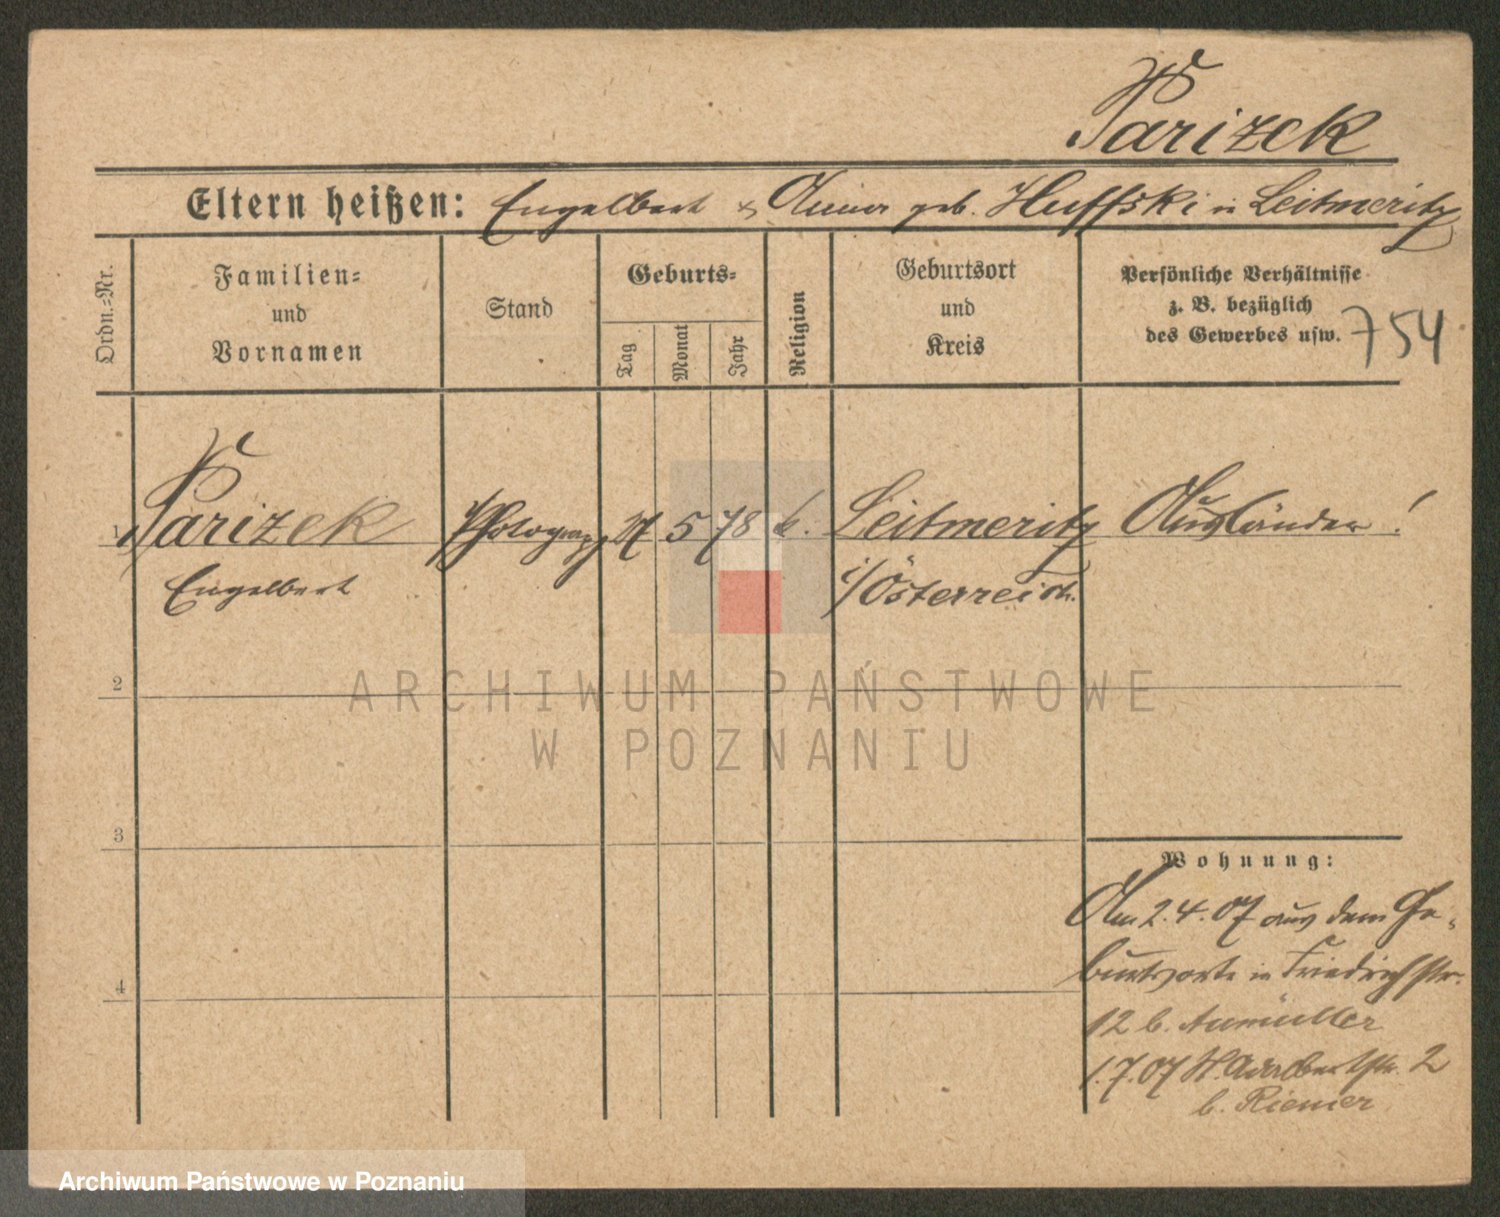 Parizek
Eltern heißen: Engelbert & Anna geb. Huffski in Leitmeritz
Ordn.-Nr.
Familien-
und
Vornamen
Stand
Geburts-
Tag
Monat
Jahr
Religion
Geburtsort
und
Kreis
Persönliche Verhältnisse
z. B. bezüglich
des Gewerbes usw.
754
1 Parizek Photograph 5 78 k. Leitmeritz Ausländer!
Engelbert i/Österreich.
2
3
4
Wohnung:
Am 2.4.07 aus dem Ge-
burtsorte in Friedrichstr.
12 b. Aumüller
1.7.07 St. Adalbertstr. 2
b. Riemer
ARCHIWUM PAŃSTWOWE
W POZNANIU
Archiwum Państwowe w Poznaniu